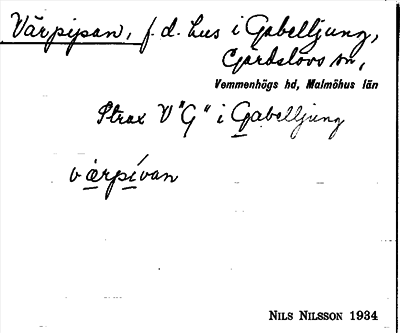 Värpipan, f. d. hus i Gabelljung,
Gärdslövs sn,
Vemmenhögs hd, Malmöhus län
Strax V "G" i Gabelljung
värpívan
NILS NILSSON 1934